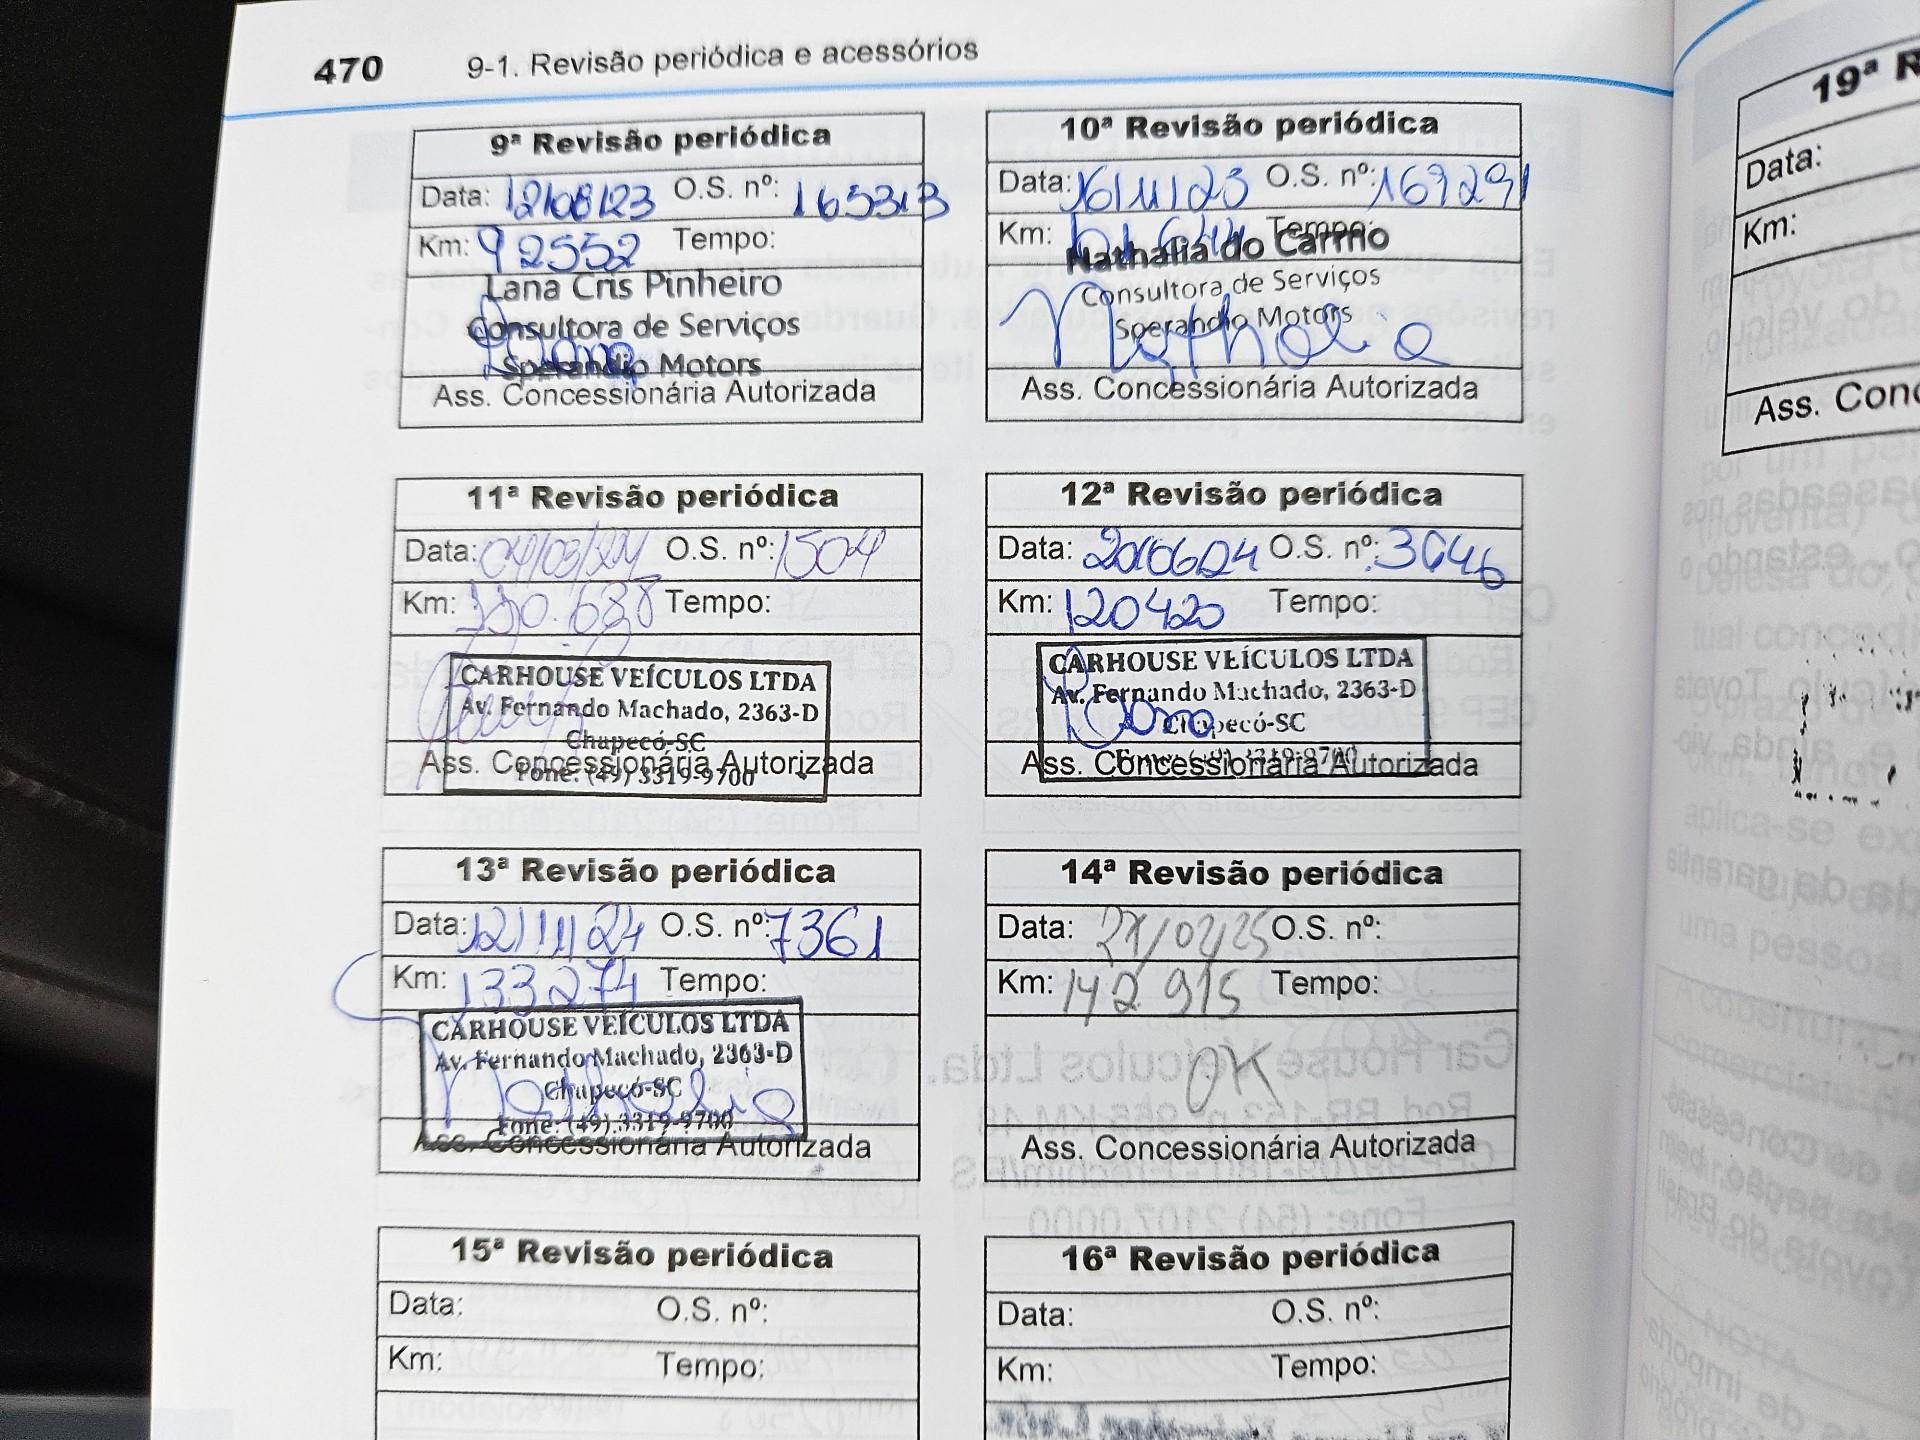 470 9-1. Revisão periódica e acessórios
9ª Revisão periódica
Data: 12/08/23 O.S. nº: 165313
Km: 92552 Tempo:
Lana Cris Pinheiro
Consultora de Serviços
Sperandio Motors
Ass. Concessionária Autorizada
10ª Revisão periódica
Data: 16/11/23 O.S. nº: 169291
Km: Tempo:
Nathalia do Carmo
Consultora de Serviços
Sperandio Motors
Nathalia
Ass. Concessionária Autorizada
11ª Revisão periódica
Data: O.S. nº: 1504
Km: 110.688 Tempo:
CARHOUSE VEÍCULOS LTDA
Av. Fernando Machado, 2363-D
Chapecó-SC
Fone: (49) 3319-9700
Ass. Concessionária Autorizada
12ª Revisão periódica
Data: 20/06/24 O.S. nº:
Km: 120420 Tempo:
CARHOUSE VEÍCULOS LTDA
Av. Fernando Machado, 2363-D
Chapecó-SC
Fone: (49) 3319-9700
Ass. Concessionária Autorizada
13ª Revisão periódica
Data: 12/11/24 O.S. nº: 7361
Km: 133274 Tempo:
CARHOUSE VEÍCULOS LTDA
Av. Fernando Machado, 2363-D
Chapecó-SC
Nathalia
Fone: (49) 3319-9700
Ass. Concessionária Autorizada
14ª Revisão periódica
Data: 27/02/25 O.S. nº:
Km: 142 915 Tempo:
OK
Ass. Concessionária Autorizada
15ª Revisão periódica
Data: O.S. nº:
Km: Tempo:
16ª Revisão periódica
Data: O.S. nº:
Km: Tempo:
19ª R
Data:
Km:
Ass. Conc